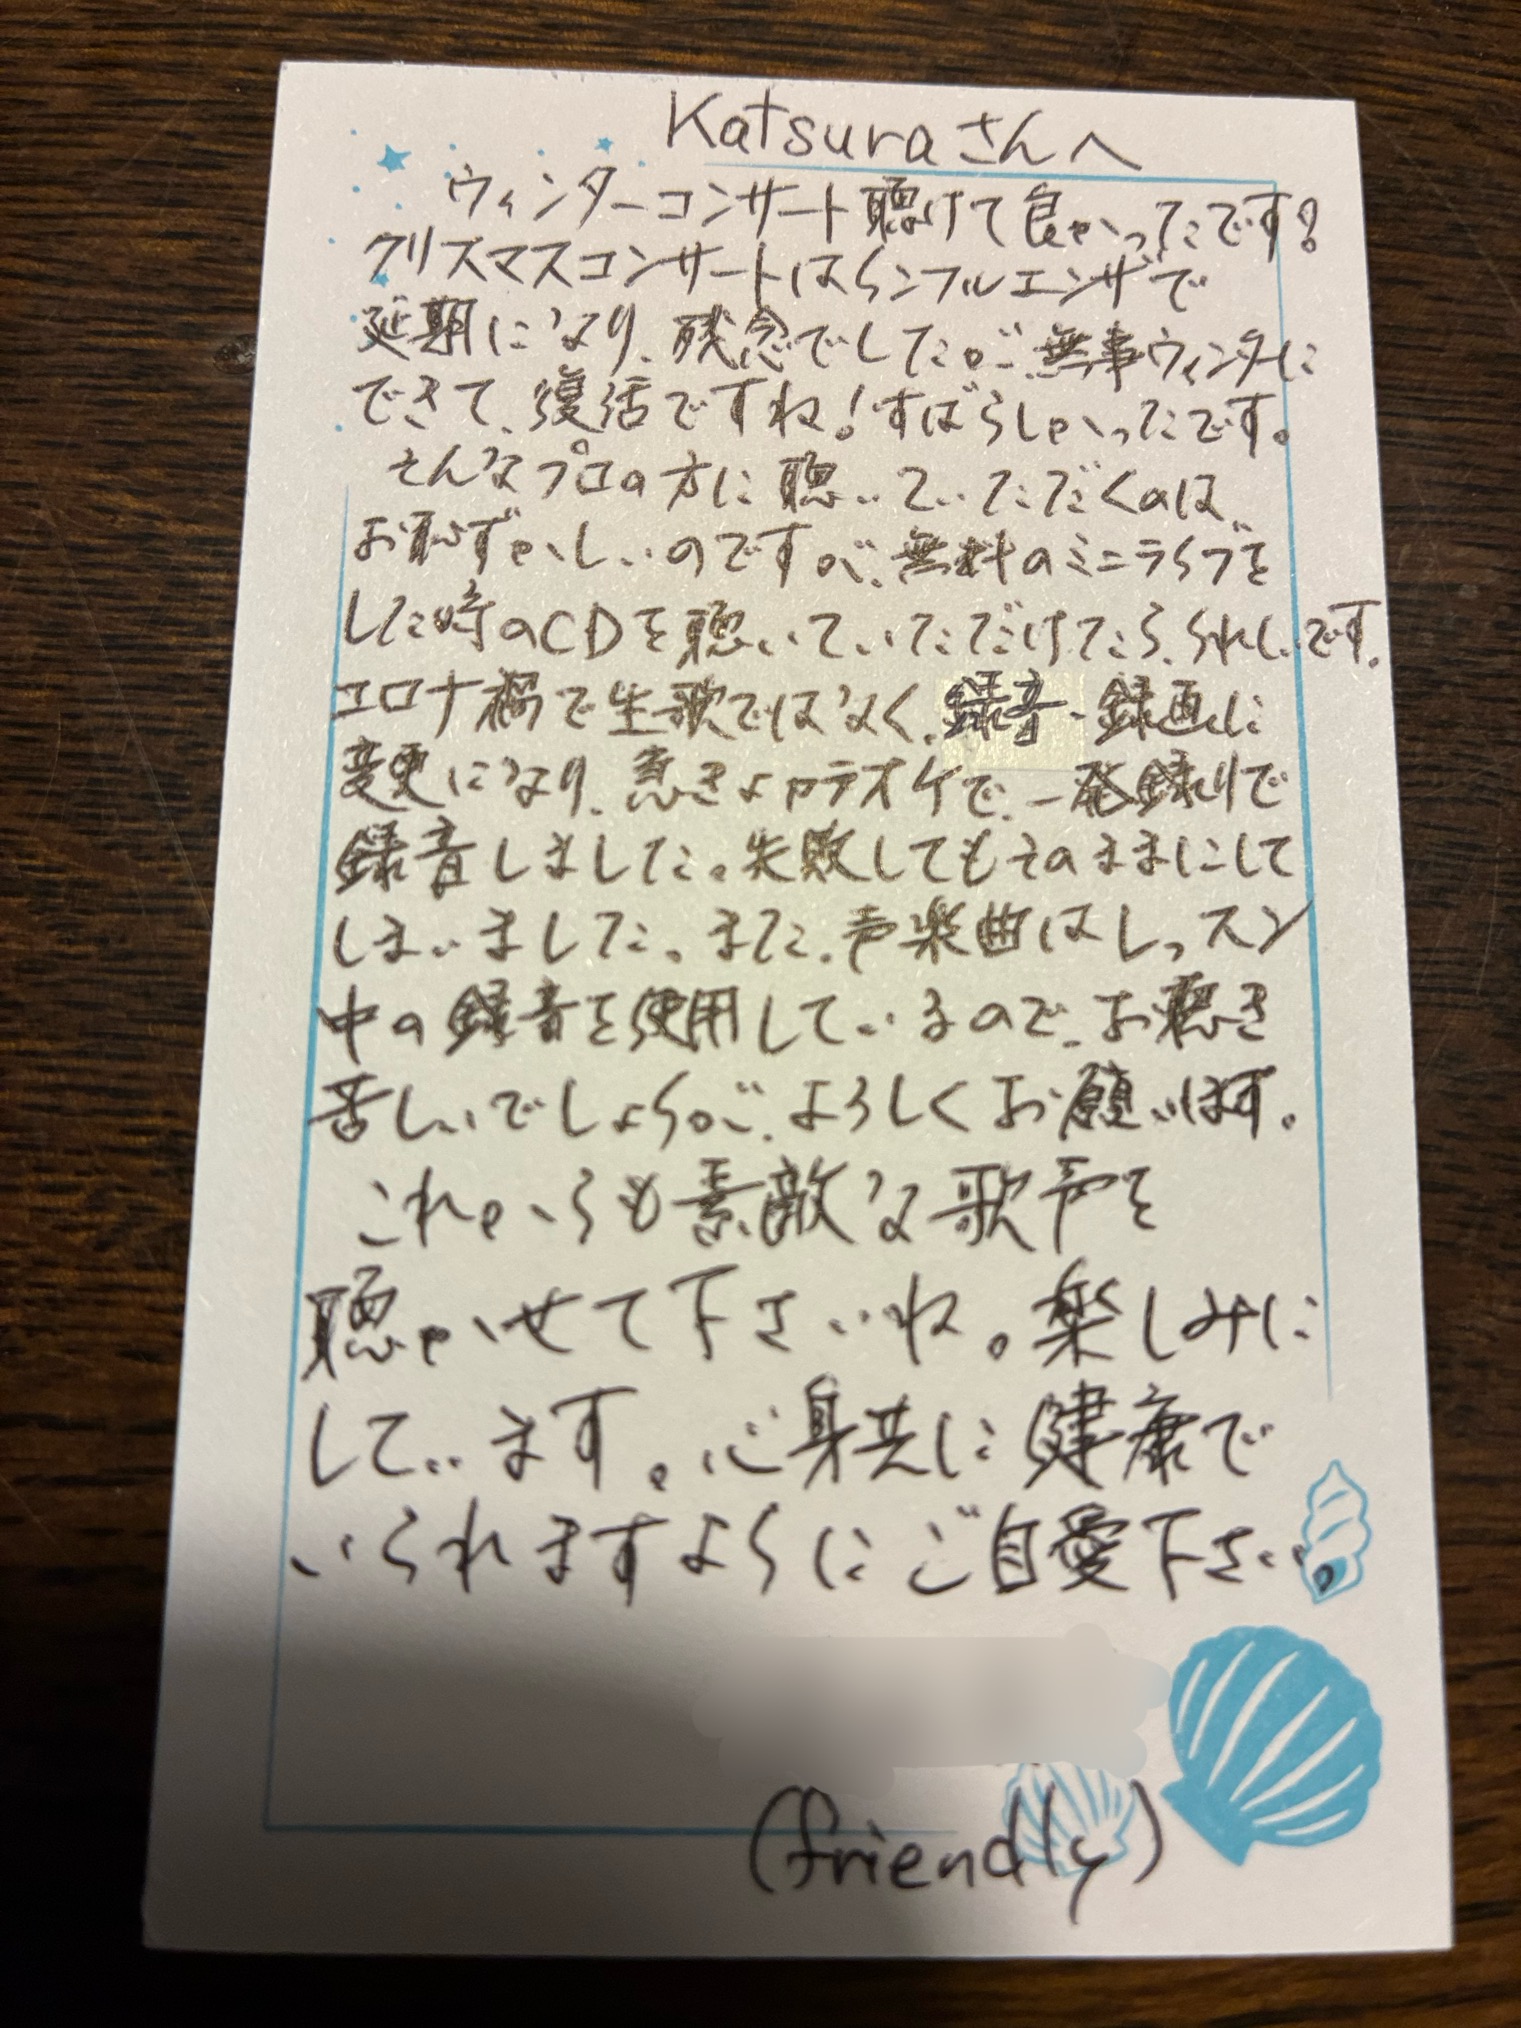 Katsuraさんへ
ウィンターコンサート聴けて良かったです!
クリスマスコンサートはインフルエンザで
延期になり、残念でしたが、無事ウィンターに
できて、復活ですね!すばらしかったです。
そんなプロの方に聴いていただくのは、
お恥ずかしいのですが、無料のミニライブを
した時のCDを聴いていただけたら、うれしいです。
コロナ禍で生歌ではなく、録音・録画に
変更になり、急きょカラオケで、一発録りで
録音しました。失敗してもそのままにして
しまいました。また、声楽曲はレッスン
中の録音を使用しているので、お聴き
苦しいでしょうが、よろしくお願いします。
これからも素敵な歌声を
聴かせて下さいね。楽しみに
しています。心身共に健康で
いられますようにご自愛下さい。
(friendly)